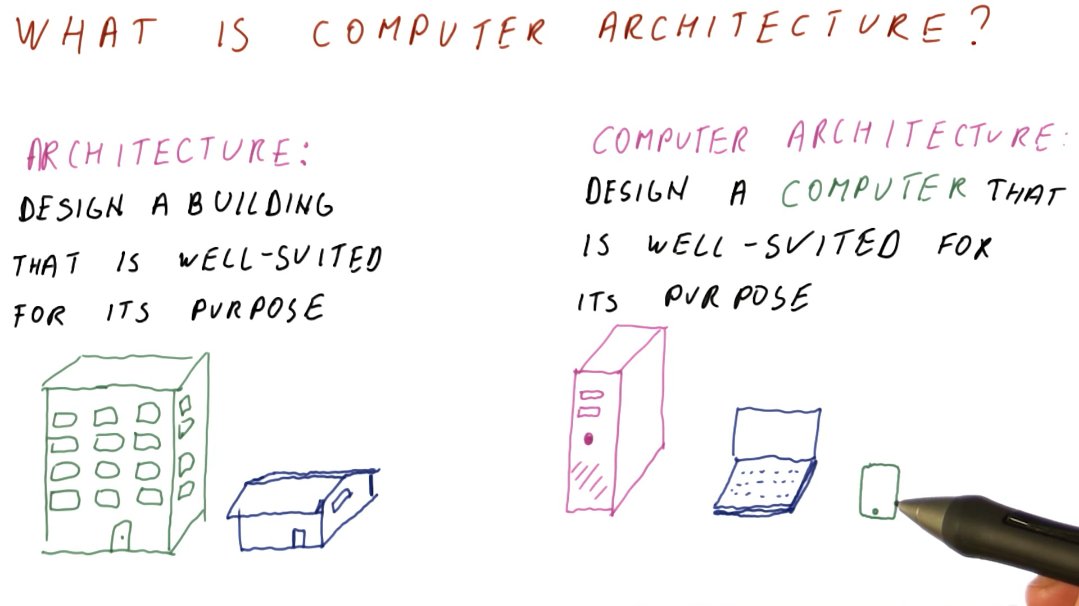 WHAT IS COMPUTER ARCHITECTURE?
ARCHITECTURE:
DESIGN A BUILDING
THAT IS WELL-SUITED
FOR ITS PURPOSE
COMPUTER ARCHITECTURE:
DESIGN A COMPUTER THAT
IS WELL-SUITED FOR
ITS PURPOSE